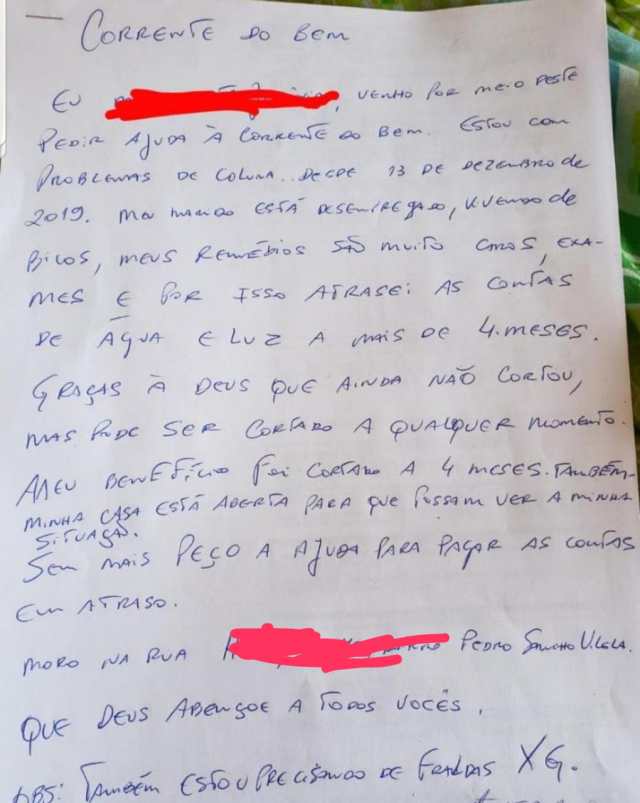 CORRENTE DO BEM
EU , VENHO POR MEIO DESTE
PEDIR AJUDA À CORRENTE DO BEM. ESTOU COM
PROBLEMAS DE COLUNA. DESDE 13 DE DEZEMBRO DE
2019. MEU MARIDO ESTÁ DESEMPREGADO, VIVENDO DE
BICOS, MEUS REMÉDIOS SÃO MUITO CAROS, EXA-
MES E POR ISSO ATRASEI AS CONTAS
DE ÁGUA E LUZ A MAIS DE 4.MESES.
GRAÇAS À DEUS QUE AINDA NÃO CORTOU,
MAS PODE SER CORTADO A QUALQUER MOMENTO.
MEU BENEFÍCIO FOI CORTADO A 4 MESES. TAMBÉM
MINHA CASA ESTÁ ABERTA PARA QUE POSSAM VER A MINHA
SITUAÇÃO.
SEM MAIS PEÇO A AJUDA PARA PAGAR AS CONTAS
EM ATRASO.
MORO NA RUA PEDRO SANCHO VILELA.
QUE DEUS ABENÇOE A TODOS VOCÊS.
OBS: TAMBÉM ESTOU PRECISANDO DE FRALDAS XG.